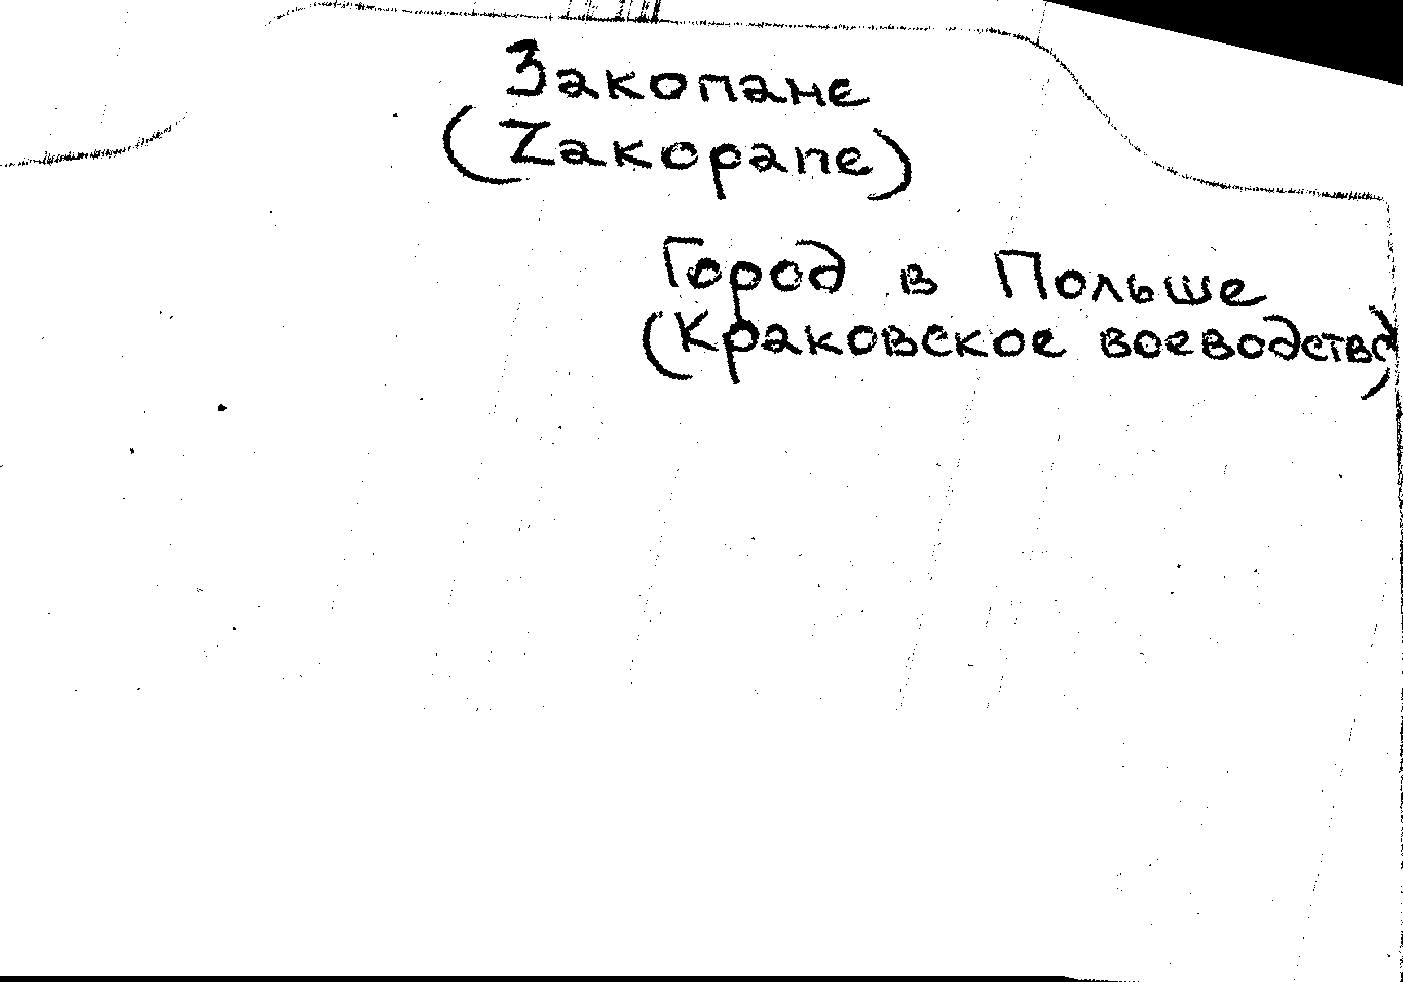 Закопане
(Zakopane)
Город в Польше
(Краковское воеводство)